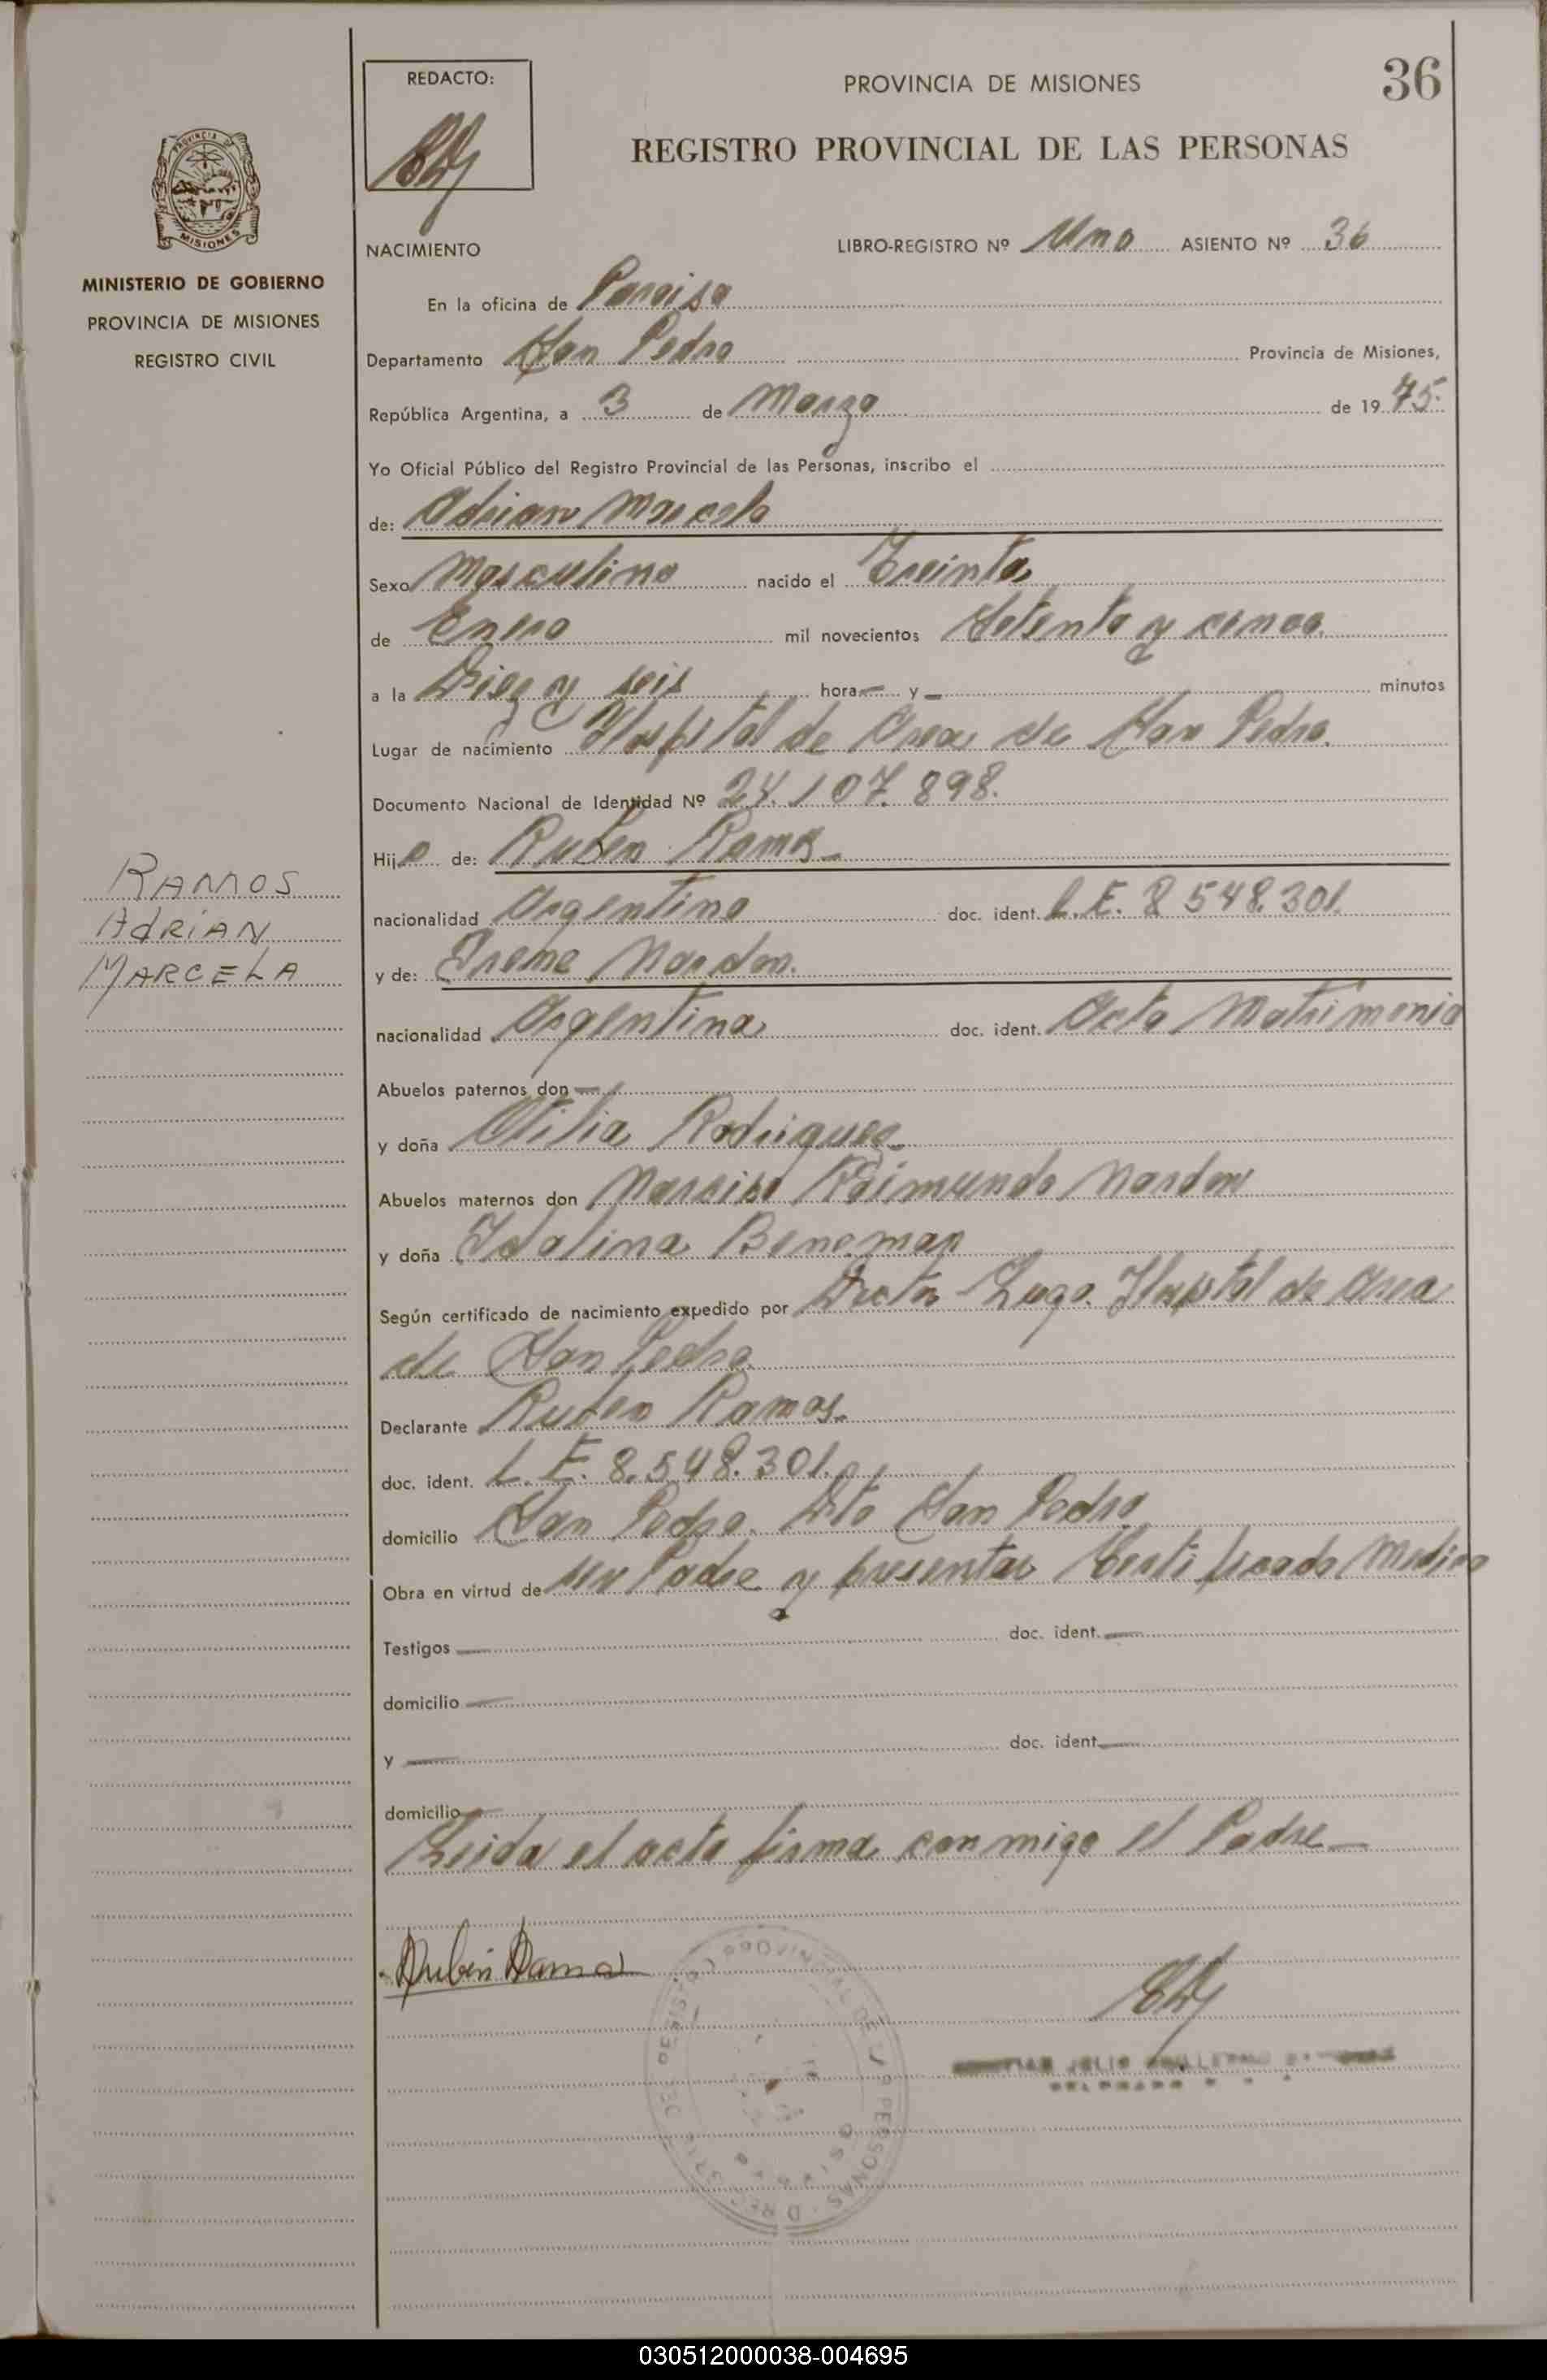 REDACTO:
PROVINCIA DE MISIONES
36
REGISTRO PROVINCIAL DE LAS PERSONAS
PROVINCIA DE
MISIONES
MINISTERIO DE GOBIERNO
PROVINCIA DE MISIONES
REGISTRO CIVIL
NACIMIENTO
LIBRO-REGISTRO Nº Uno ASIENTO Nº 36
En la oficina de Paraiso
Departamento San Pedro Provincia de Misiones,
República Argentina, a 3 de Marzo de 1975
Yo Oficial Público del Registro Provincial de las Personas, inscribo el
de: Adrian Marcelo
Sexo Masculino nacido el Treinta
de Enero mil novecientos Setenta y cinco.
a la Diez y seis hora — y — minutos
Lugar de nacimiento Hospital de Area de San Pedro.
Documento Nacional de Identidad Nº 24.107.898.
Hijo de: Ruben Ramos
RAMOS
ADRIAN
MARCELA
nacionalidad Argentino doc. ident. L.E. 8.548.301.
y de: Irene Nardon.
nacionalidad Argentina doc. ident. Acta Matrimonio
Abuelos paternos don —
y doña Otilia Rodriguez
Abuelos maternos don Narciso Raimundo Nardon
y doña Idalina Beneman
Según certificado de nacimiento expedido por Doctor Lugo. Hospital de Area
de San Pedro
Declarante Ruben Ramos.
doc. ident. L.E. 8.548.301.
domicilio San Pedro. Dto San Pedro
Obra en virtud de ser Padre y presentar Certificado Medico
Testigos — doc. ident. —
domicilio —
y — doc. ident. —
domicilio —
Leida el acta firma conmigo el Padre —
Rubén Ramos
JULIO
030512000038-004695